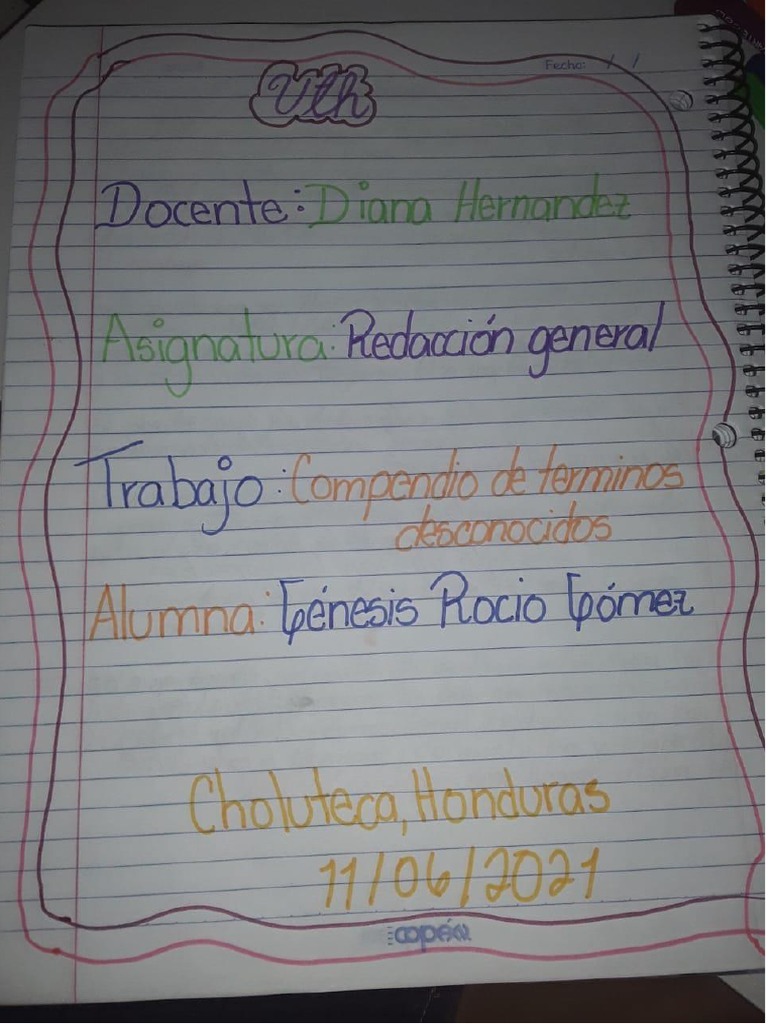 Fecha: / /
Uth
Docente: Diana Hernandez
Asignatura: Redacción general
Trabajo: Compendio de terminos
desconocidos
Alumna: Génesis Rocio Gómez
Choluteca, Honduras
11/06/2021
copán